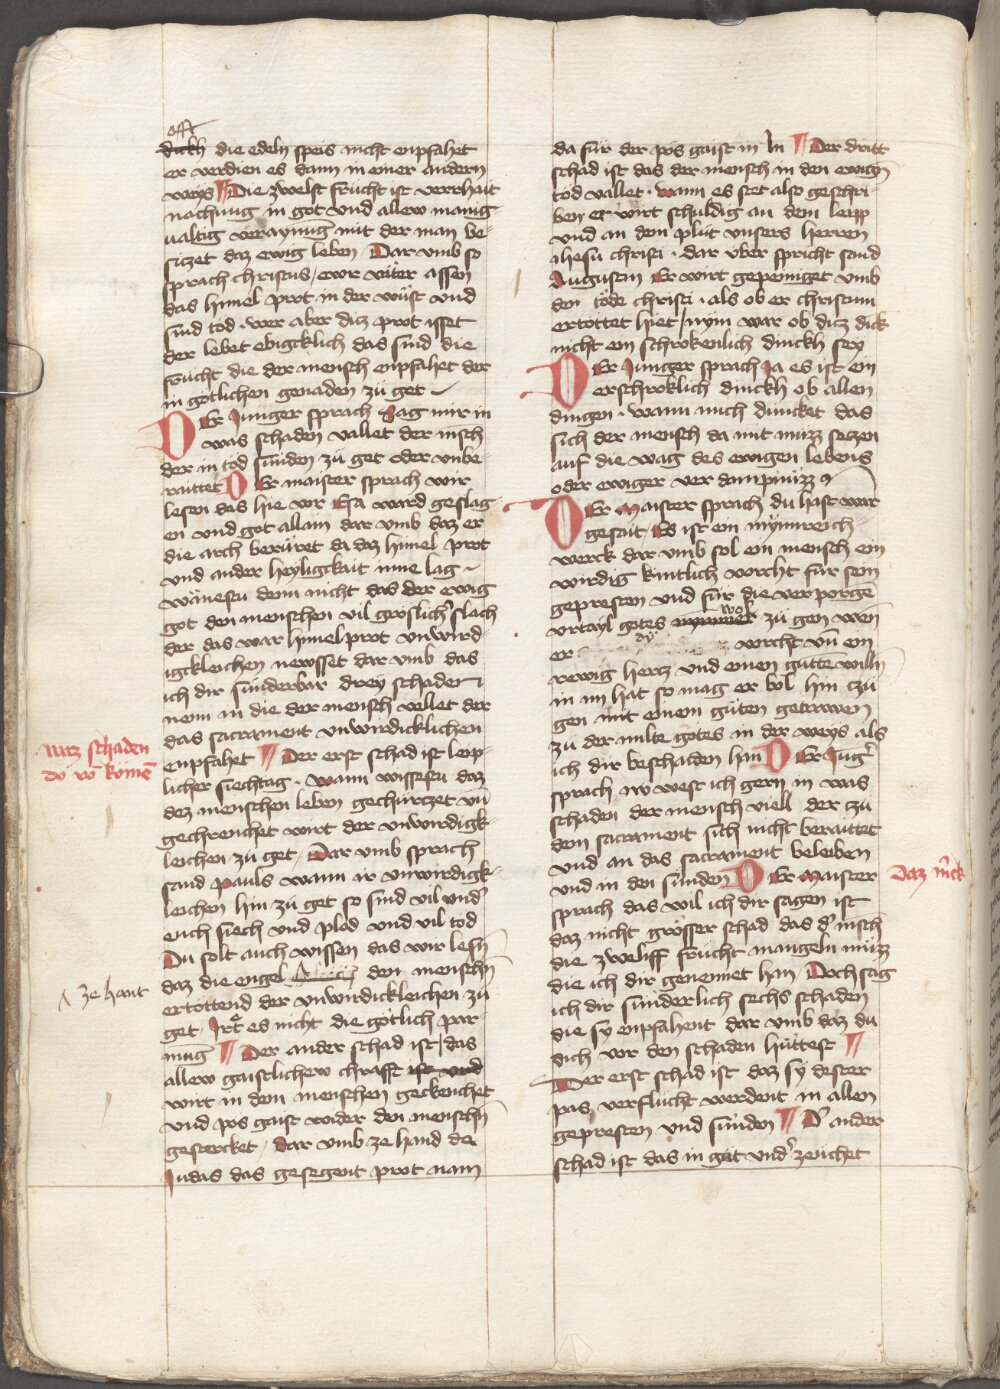 oft
dickh die edeln speis nicht enpfahet
er verdien es dann in einer andern
weys ¶ Die zwelft frücht ist verrhait
nachung in got vnd allew manig
ualtig veraynung mit der man be-
siczet daz ewig leben Dar vmb so
sprach christus / ewr väter assen
das himel prot in der wüst vnd
sind tod · wer aber dicz prot isset
der lebet ebigcklich das sind die
frücht die der mensch enpfahet der
in götlichen genaden zü get ~
DEr Junger sprach Sag mir in
was schaden vallet der msch
der in tod sünden zü get oder vnbe-
raittet DEr maister sprach wir
lesen das hie vor Esa ward geslag-
en vnd got allain dar vmb daz er
die arch berüret da daz himel prot
vnd ander heyligckait inne lag ~
wänestu denn nicht das der ewig
got den menschen vil gröslich' slach
der das war himelprot vnwird-
igkleichen newsset dar vmb das
ich dir sünderbar drey schaden
nenn in die der mensch vellet der
das sacrament vnwirdicklichen
enpfahet ¶ Der erst schad ist leip-
licher siechtag · wann wissestu daz
dez menschen leben gechürczet vn̄
gechrenchet wirt der vnwirdigk-
leichen zü get / Dar vmb sprach
sand pauls wann ir vnwirdigk-
leichen hin zü get so sind vil vnd'
euch siech vnd plöd vnd vil tod
Du solt auch wissen das wir lesn̄
daz die engel den menschn̄
ertöttend der vnwirdickleichen zü
get / Irret es nicht die götlich par-
mug ¶ Der ander schad ist / das
allew gaistlichew chrafft ist vnd
wirt in dem menschen gechrenchet
vnd pös gaist wider den menschn̄
gestercket / Dar vmb ze hand do
Judas das gesegent prot nam
wiz schaden
do vō kömē
ʌ ze hant
da für der pös gaist in in ¶ Der dritt
schad ist das der mensch in den ewign̄
tod vallet · wann es stet also geschri-
ben er wirt schuldig an dem leipp
vnd an dem plüt vnsers herren
ihesu christi · dar vber spricht sand
Augustin Er wirt gepeiniget vmb
den töde christi · als ob er christum
ertöttet hiet / nym war ob dicz dick
nicht ein schrokenlich dinckh sey
DEr Junger sprach Ja es ist ein
erschröklich dinckh ob allen
dingen · wann mich duncket das
sich der mensch da mit muzz seczen
auf die wag des ewigen lebens
oder ewiger ver dampnüzz
DEr Maister sprach du hast war
gesait Es ist ein mynnreich
werck dar vmb sol ein mensch ein
wirdig kintlich vorcht für sein
gepresten vnd für die verporgē
vrtayl gotes nymmer wol zü gen wen
er dÿ vorcht vn̄ ein
rewig hercz vnd einen gütte willn̄
in im hat so mag er wol hin zü
gen mit einem güten getrawen
zü der milte gotes in der weys als
ich dir beschaiden hin DEr Jūg'
sprach nv west ich gern in was
schaden der mensch viell der zü
dem sacrament sich nicht beraittet
vnd an das sacrament beleiben
vnd in den sünden DEr Maister
sprach das wil ich dir sagen ist
daz nicht grösser schad das d' msch
die zweliff frücht mangeln müzz
die ich dir genennet han / Doch sag
ich dir sünderlich sechs schaden
die sy enpfahent dar vmb daz du
dich vor den schaden hüttest ¶
Der erst schad ist daz sy dester
pas verflücht werdent in allen
gepresten vnd sünden ¶ D' ander
schad ist das in güt vnd' zeuchet
Daz m'ck